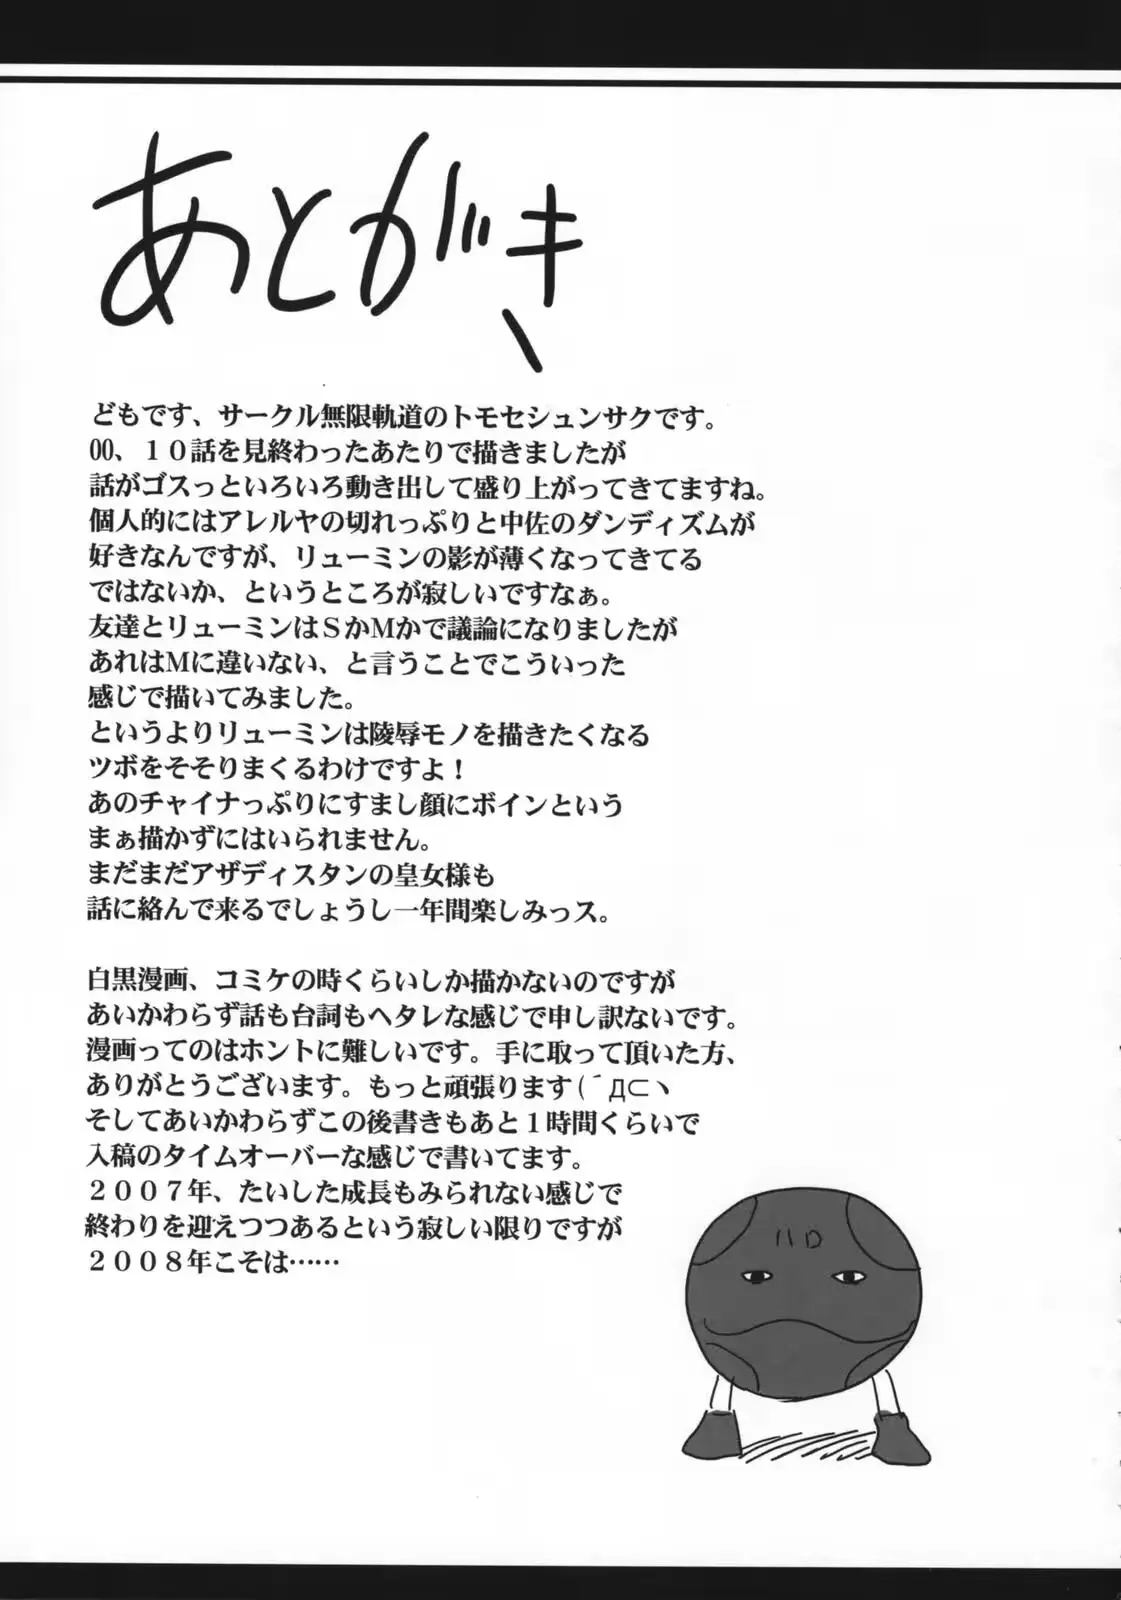 あとがき
どもです、サークル無限軌道のトモセシュンサクです。
00、１０話を見終わったあたりで描きましたが
話がゴスっといろいろ動き出して盛り上がってきてますね。
個人的にはアレルヤの切れっぷりと中佐のダンディズムが
好きなんですが、リューミンの影が薄くなってきてる
ではないか、というところが寂しいですなぁ。
友達とリューミンはＳかＭかで議論になりましたが
あれはＭに違いない、と言うことでこういった
感じで描いてみました。
というよりリューミンは陵辱モノを描きたくなる
ツボをそそりまくるわけですよ！
あのチャイナっぷりにすまし顔にボインという
まぁ描かずにはいられません。
まだまだアザディスタンの皇女様も
話に絡んで来るでしょうし一年間楽しみっス。
白黒漫画、コミケの時くらいしか描かないのですが
あいかわらず話も台詞もヘタレな感じで申し訳ないです。
漫画ってのはホントに難しいです。手に取って頂いた方、
ありがとうございます。もっと頑張ります(´Д⊂ヽ
そしてあいかわらずこの後書きもあと１時間くらいで
入稿のタイムオーバーな感じで書いてます。
２００７年、たいした成長もみられない感じで
終わりを迎えつつあるという寂しい限りですが
２００８年こそは……
ハロ